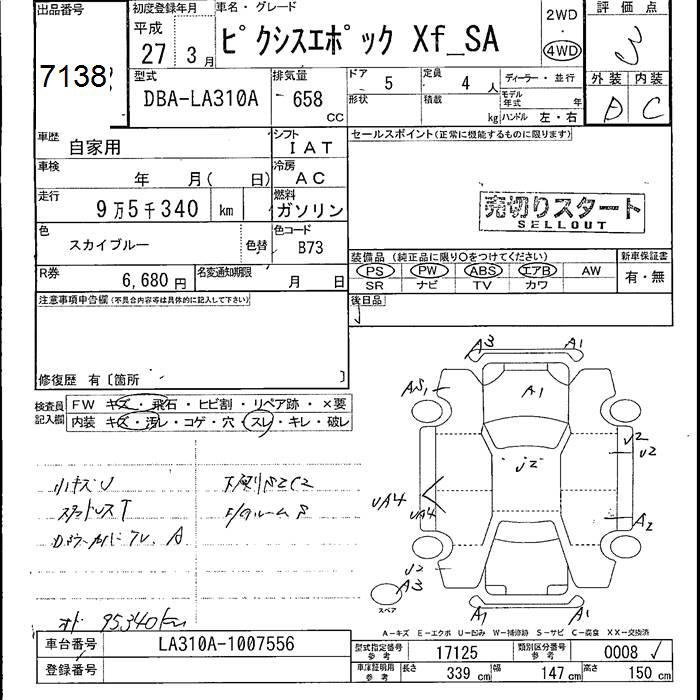 出品番号
7138
初度登録年月
平成
27 3月
車名・グレード
ﾋﾟｸｼｽｴﾎﾟｯｸ Xf_SA
2WD
・
4WD
評価点
3
外装 内装
D C
型式
DBA-LA310A
排気量
658
CC
ドア
5
定員
4 人
形状
積載
kg
ディーラー・並行
モデル年式 年
ハンドル 左・右
車歴
自家用
シフト
IAT
セールスポイント(正常に機能するものに限ります)
車検
年 月( 日)
冷房
AC
走行
9万5千340 km
燃料
ガソリン
売切りスタート
SELLOUT
色
スカイブルー
色替
色コード
B73
装備品 (純正品に限り○をつけてください)
PS PW ABS エアB AW
SR ナビ TV カワ
新車保証書
有・無
R券
6,680 円
名変通知期限
月 日
後日品
注意事項申告欄(不具合内容等は具体的に記入して下さい)
修復歴 有〔箇所 〕
検査員
記入欄
FW キズ・飛石・ヒビ割・リペア跡・×要
内装 キズ・汚レ・コゲ・穴・スレ・キレ・破レ
小キズU
スタットレスT
A
95340km
A3 A1
A1
U2
U2
U2
UA4
UA4
A2
U2
A3
スペア
A1 A1
A-キズ E-エクボ U-凹み W-補修跡 S-サビ C-腐食 XX-交換済
車台番号
LA310A-1007556
登録番号
型式指定番号
参考
17125
類別区分番号
参考
0008
車庫証明用
参考
長さ
339 cm
幅
147 cm
高さ
150 cm